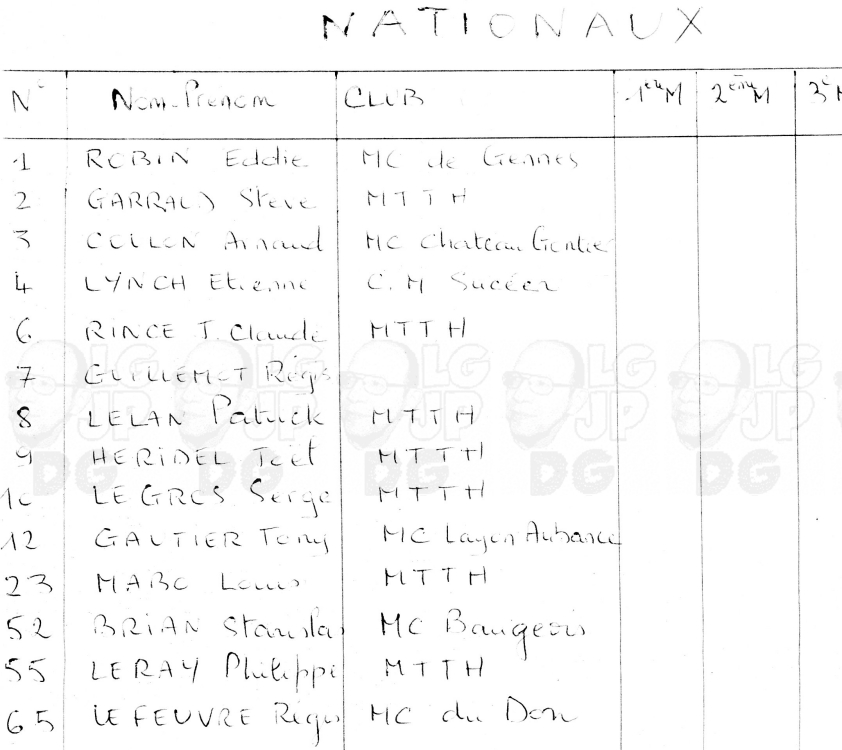 NATIONAUX
N° Nom-Prénom CLUB 1er M 2ème M 3è M
1 ROBIN Eddie MC de Gennes
2 GARRAUD Steve MTTH
3 COULON Arnaud MC Chateau Gontier
4 LYNCH Etienne C.M Sucéen
6 RINCE J.Claude MTTH
7 GUILLEMOT Régis
8 LELAN Patrick MTTH
9 HERIDEL Joël MTTH
10 LEGROS Serge MTTH
12 GAUTIER Tony MC Layon Aubance
23 MABO Louis MTTH
52 BRIAN Stanislas MC Baugeois
55 LERAY Philippe MTTH
65 LE FEUVRE Régis MC du Don
LG JP DG LG JP DG LG JP DG LG JP DG LG JP DG